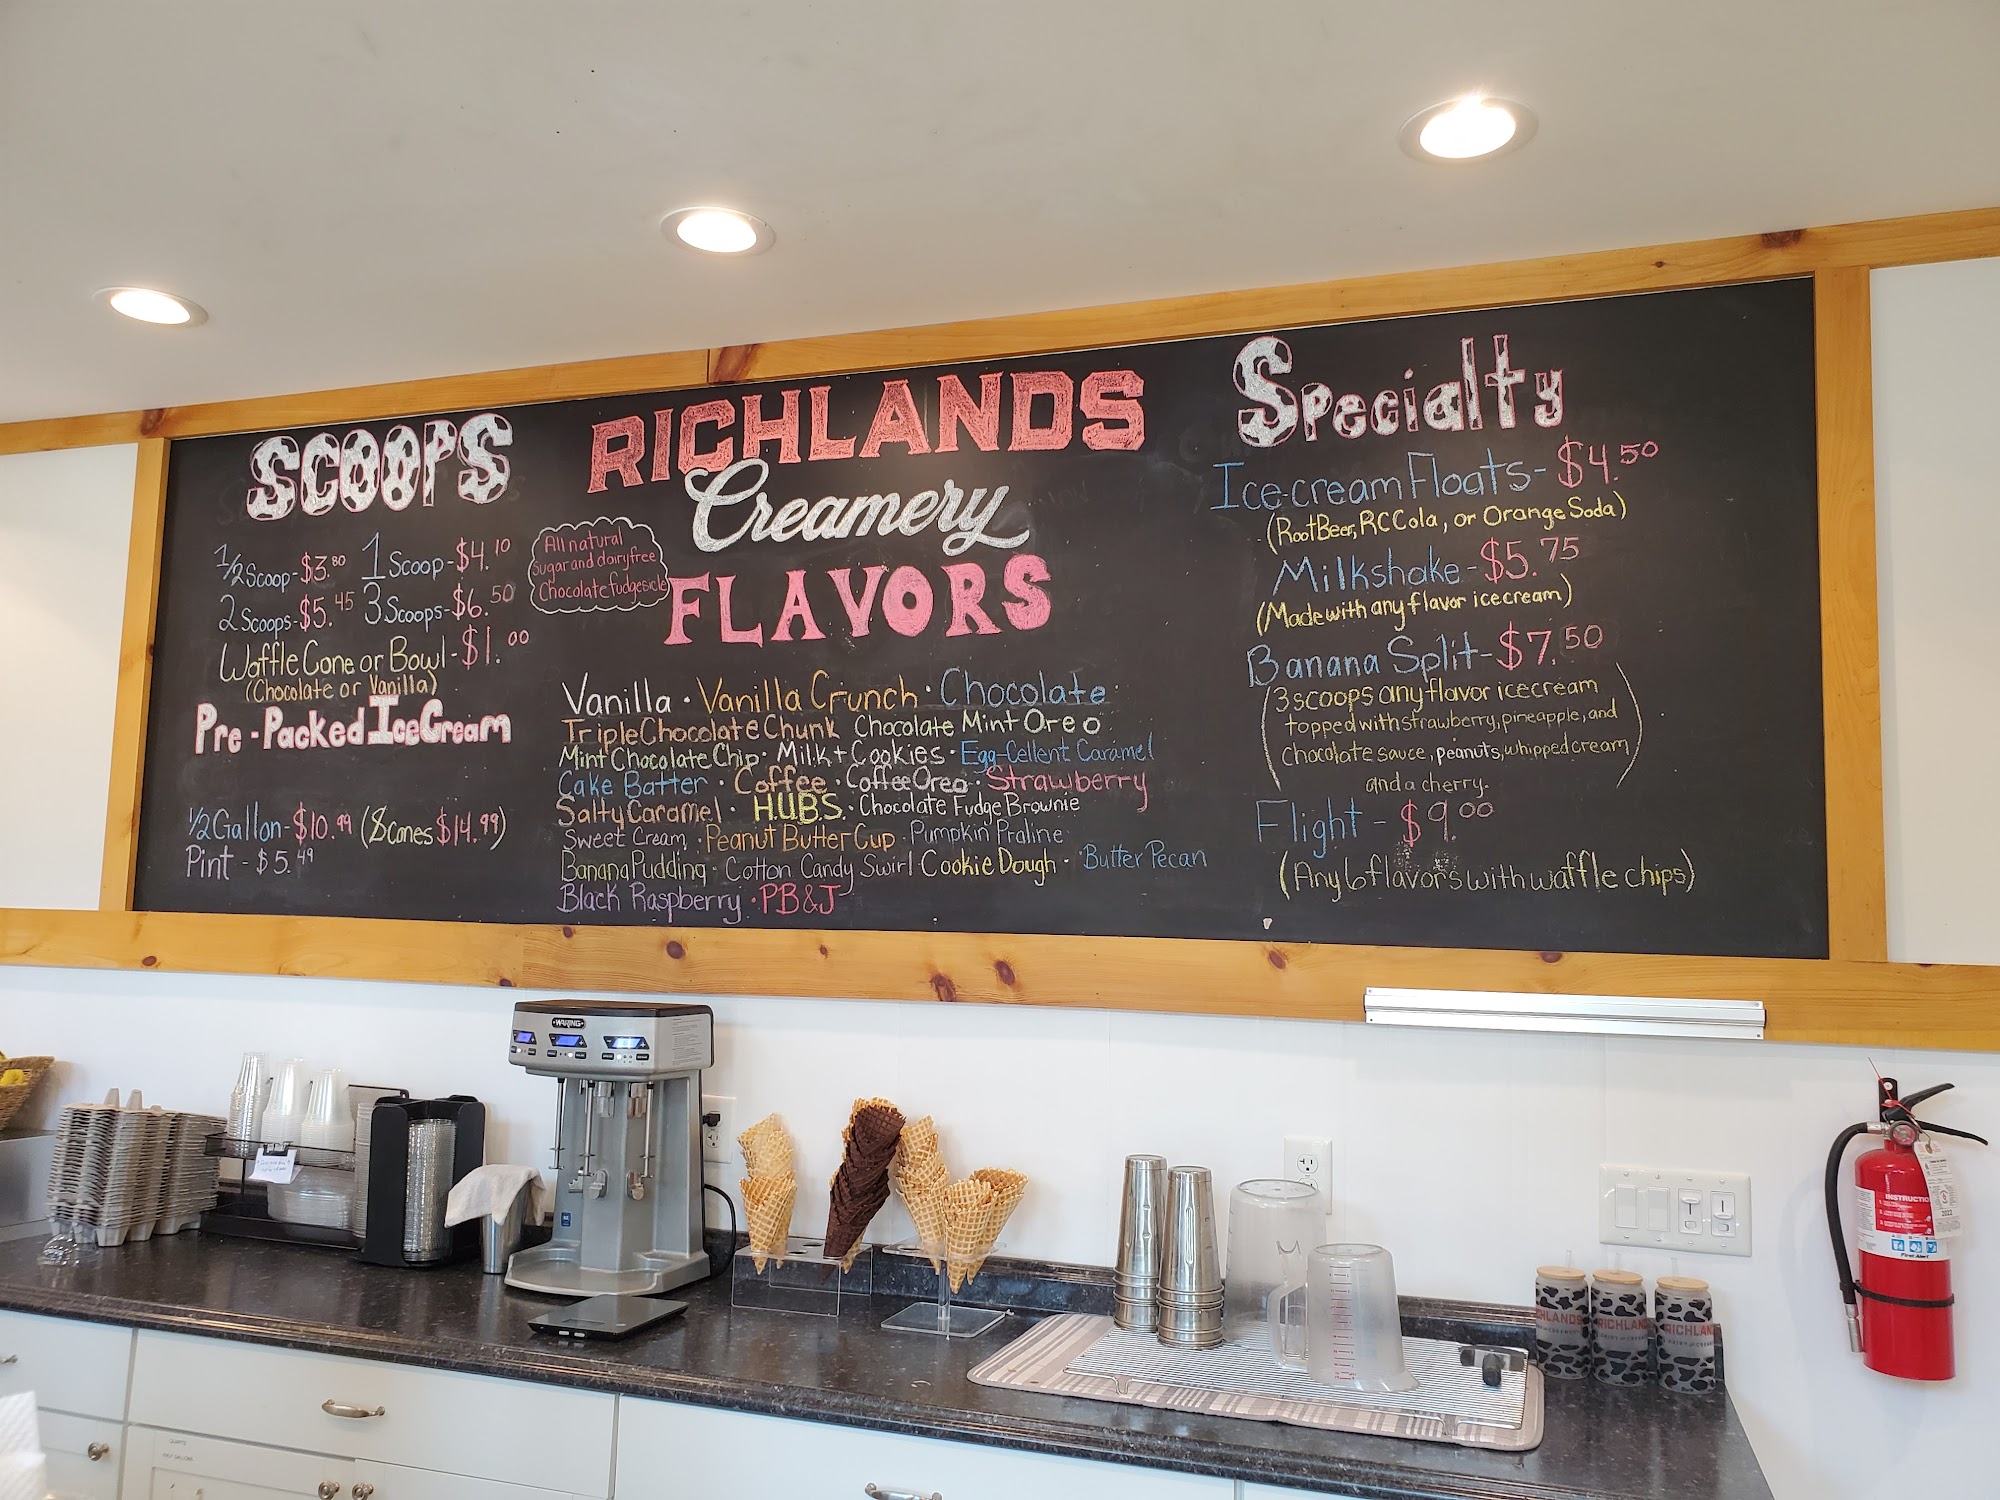 SCOOPS
1/2 Scoop - $3.80 1 Scoop - $4.10
2 Scoops - $5.45 3 Scoops - $6.50
Waffle Cone or Bowl - $1.00
(Chocolate or Vanilla)
Pre-Packed Ice Cream
1/2 Gallon - $10.99 (8 Cones $14.99)
Pint - $5.49
RICHLANDS
Creamery
FLAVORS
All natural
Sugar and dairy free
Chocolate fudgesicle
Vanilla · Vanilla Crunch · Chocolate
Triple Chocolate Chunk Chocolate Mint Oreo
Mint Chocolate Chip · Milk + Cookies · Egg-Cellent Caramel
Cake Batter · Coffee · Coffee Oreo · Strawberry
Salty Caramel · H.U.B.S. · Chocolate Fudge Brownie
Sweet Cream · Peanut Butter Cup · Pumpkin Praline
Banana Pudding · Cotton Candy Swirl Cookie Dough · Butter Pecan
Black Raspberry · PB&J
Specialty
Ice-cream Floats - $4.50
(Root Beer, RC Cola, or Orange Soda)
Milkshake - $5.75
(Made with any flavor ice cream)
Banana Split - $7.50
(3 scoops any flavor ice cream
topped with strawberry, pineapple, and
chocolate sauce, peanuts, whipped cream
and a cherry.)
Flight - $9.00
(Any 6 flavors with waffle chips)
WARING
INSTRUCTIO
First Alert
2022
RICHLANDS
RICHLAN
RICHLAN